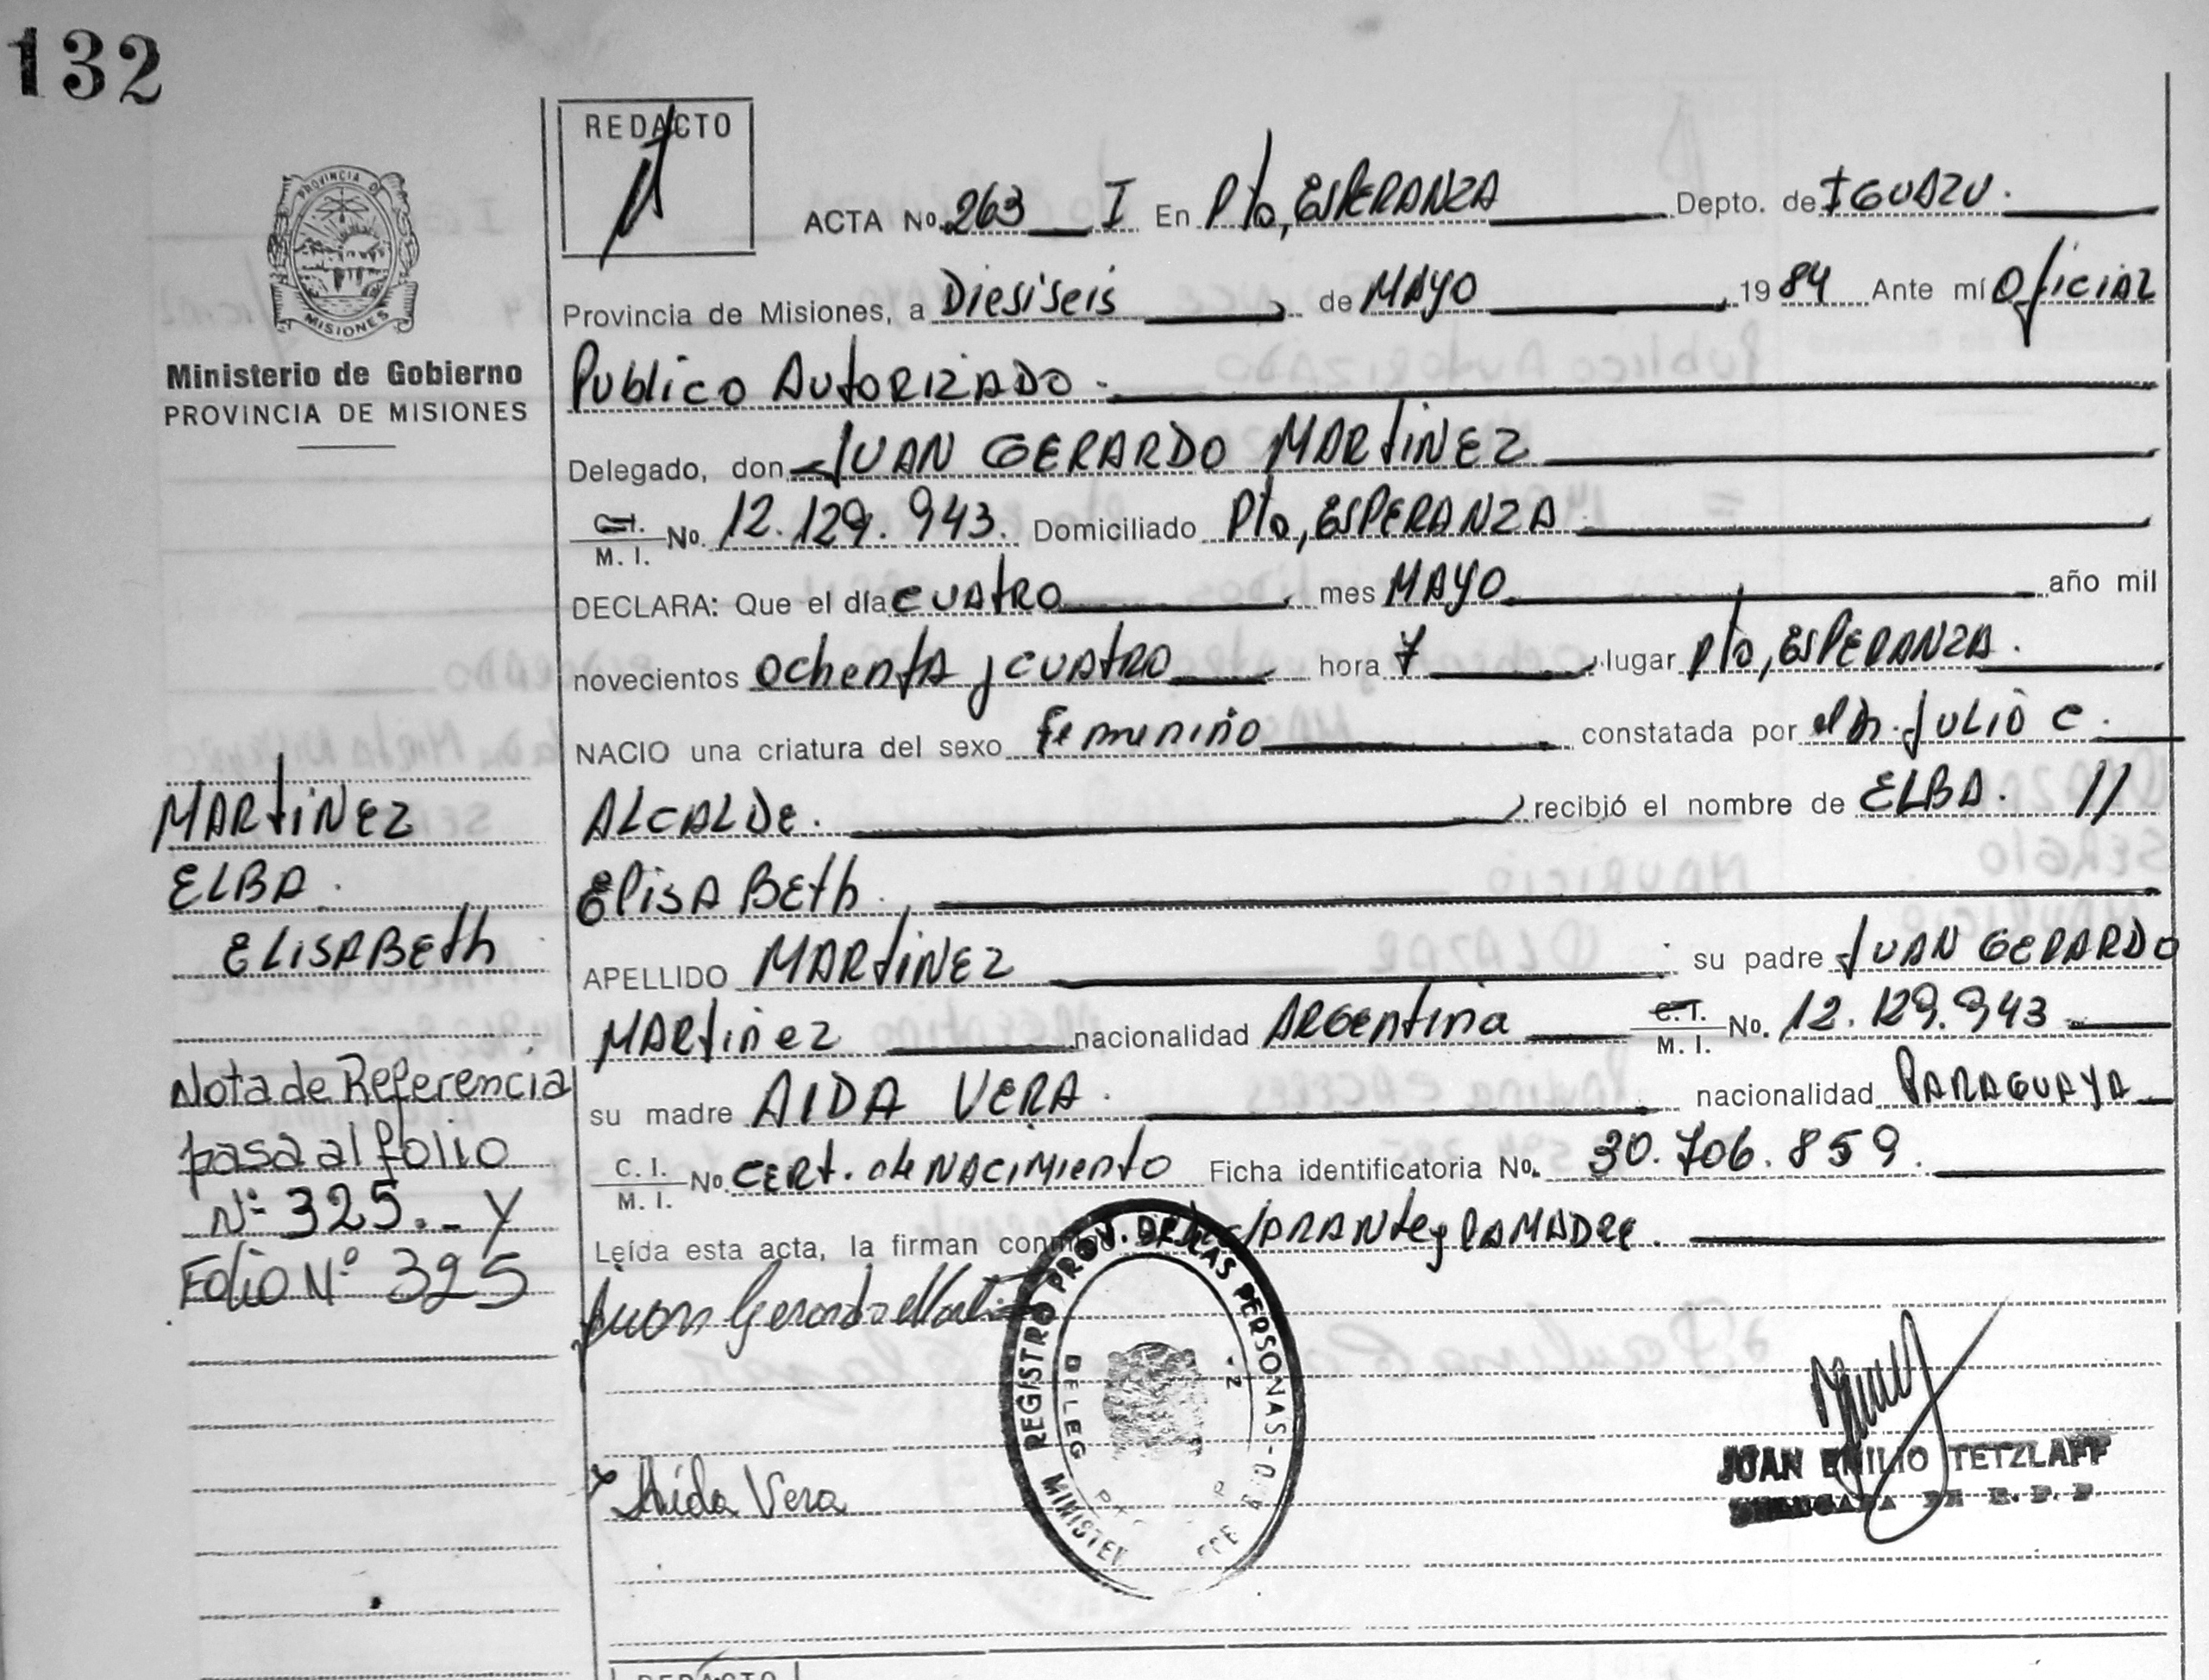 132
REDACTO
PROVINCIA D
MISIONES
Ministerio de Gobierno
PROVINCIA DE MISIONES
ACTA No. 263 I En Pto, ESPERANZA Depto. de IGUAZU.
Provincia de Misiones, a Diesiseis de MAYO 1984 Ante mí Oficial
Publico Autorizado.
Delegado, don JUAN GERARDO MARTINEZ
C.I. M. I. No. 12.129.943. Domiciliado Pto, ESPERANZA
DECLARA: Que el día cuatro mes MAYO año mil
novecientos ochenta y cuatro hora 7 lugar Pto, ESPERANZA.
NACIO una criatura del sexo femenino constatada por el Dr. JULIO C.
ALCALDE. recibió el nombre de ELBA. //
ElisABEth.
APELLIDO MARTINEZ su padre JUAN GERARDO
MARTINEZ nacionalidad ARGENTINA C.I. M. I. No. 12.129.943
su madre AIDA VERA. nacionalidad PARAGUAYA
C. I. M. I. No. CERT. de NACIMIENTO Ficha identificatoria No. 30.706.859.
Leída esta acta, la firman con y la MADRE.
MARTINEZ
ELBA.
ELISABEth
Nota de Referencia
pasa al folio
Nº 325.- y
Folio Nº 325
Juan Gerardo Marti
Aída Vera
REGISTRO PROV. DE LAS PERSONAS
DELEG
MINISTE
JUAN EMILIO TETZLAFF
REDACTO